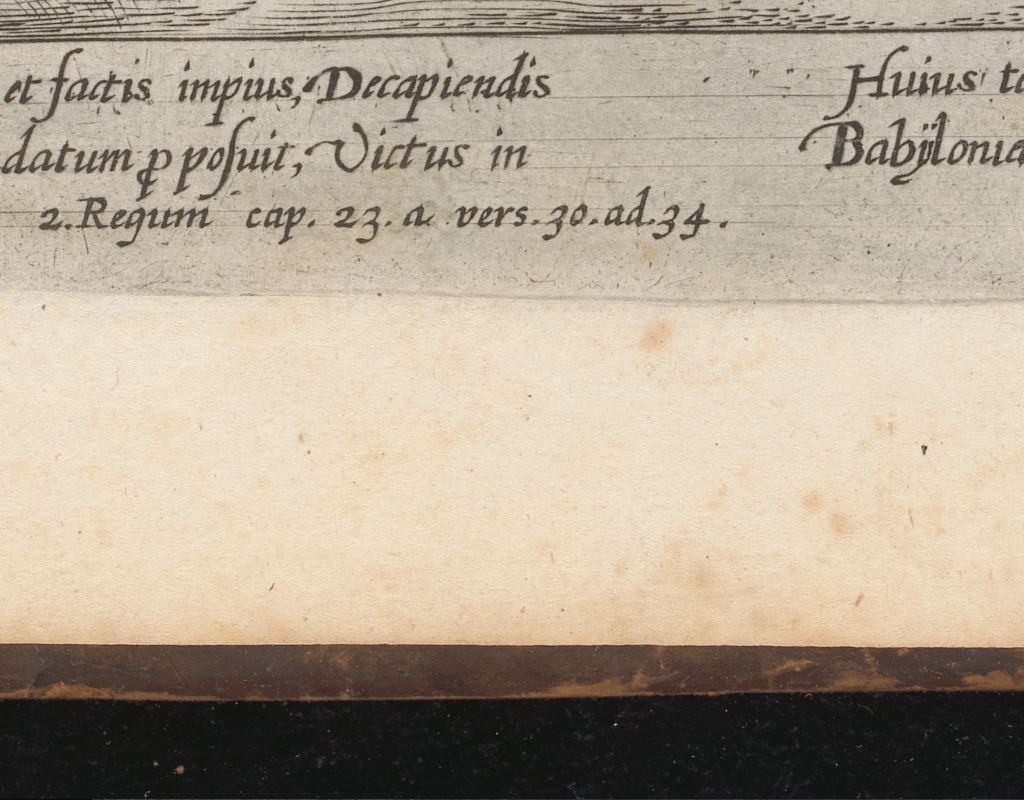 et factis impius, Decapiendis
datum ꝓ posuit, Victus in
2. Regum cap. 23. a vers. 30. ad. 34.
Huius